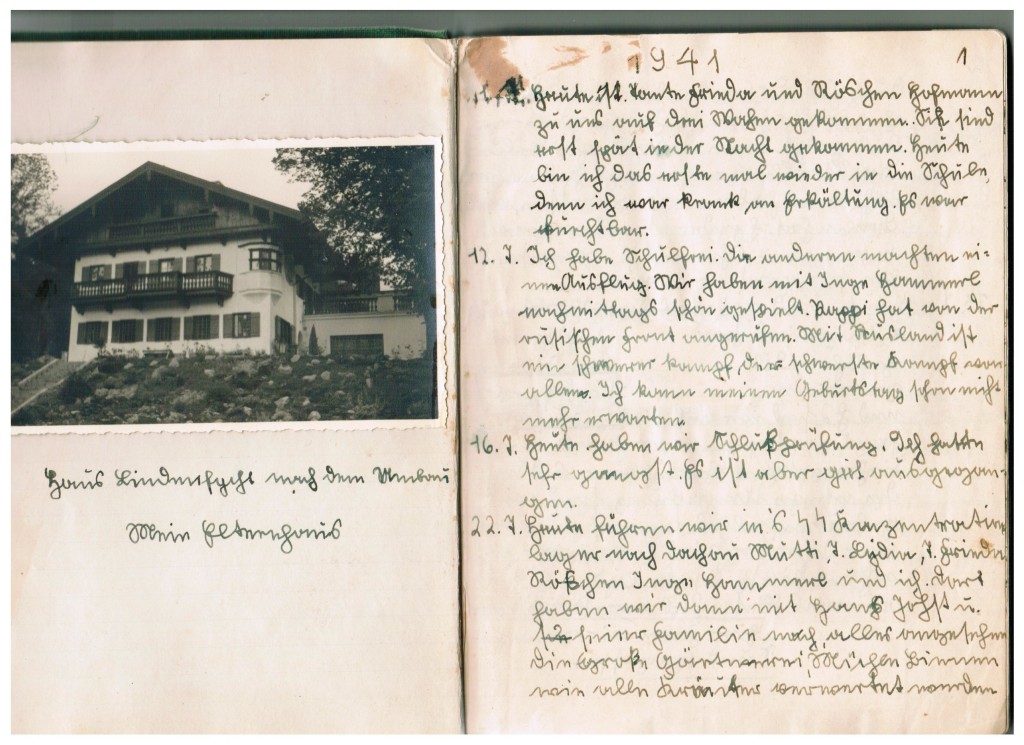 Haus Lindenfycht nach dem Umbau
Mein Elternhaus
1941
1
Heute ist Tante Frieda und Röschen Hofmann
zu uns auf drei Wochen gekommen. Sie sind
erst spät in der Nacht gekommen. Heute
bin ich das erste mal wieder in die Schule,
denn ich war krank an Erkältung. Es war
furchtbar.
12. 7. Ich habe Schulfrei. Die anderen machten ei-
nen Ausflug. Wir haben mit Inge Hammerl
nachmittags schön gespielt. Pappi hat von der
rusischen Front angerufen. Mit Rusland ist
ein schwerer kampf, der schwerste Kampf von
allen. Ich kann meinen Geburtstag schon nicht
mehr erwarten.
16. 7. Heute haben wir Schlußprüfung. Ich hatte
sehr gangst. Es ist aber gut ausgegan-
gen.
22. 7. Heute führen wir in's SS Kanzentration
lager nach Dachau Mutti, T. Lydia, T. Frieda
Röschen Inge Hammerl und ich. Dort
haben wir dann mit Hans Johst u.
seiner Familie nach alles angesehen
die große Gärtnerei, Mühle Bienen
wie alle Kräuter verwertet wurden